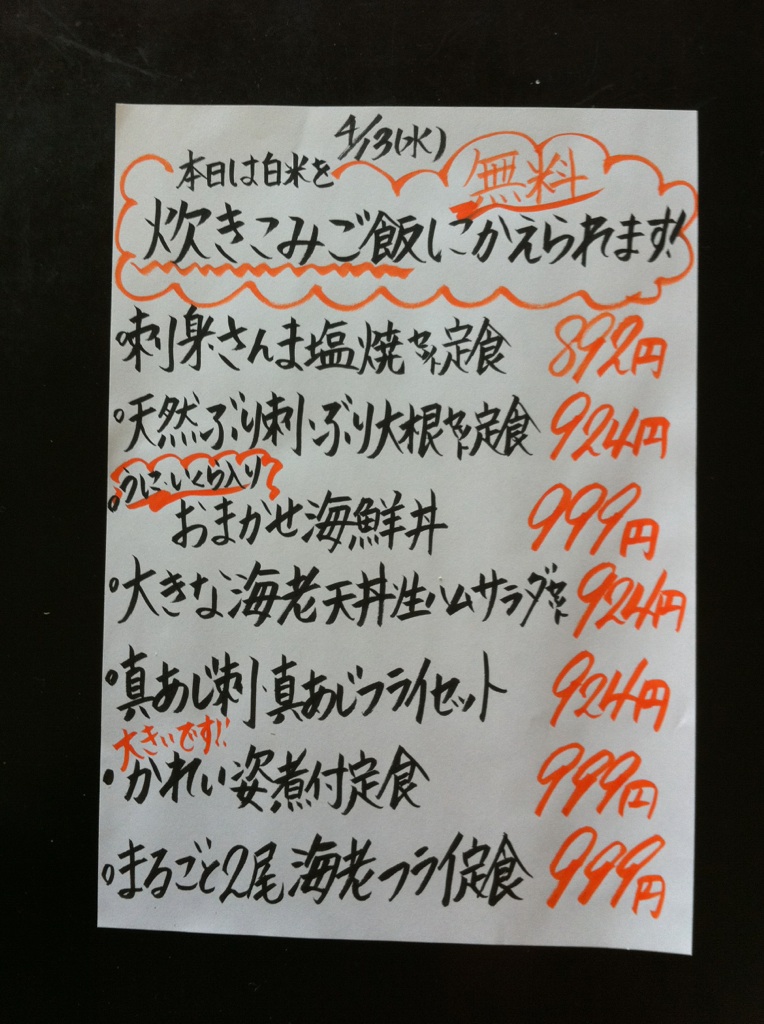 4/13(水)
本日は白米を
無料
炊きこみご飯にかえられます!
・刺身・さんま塩焼セット定食 892円
・天然ぶり刺・ぶり大根セット定食 924円
うに・いくら入り
・おまかせ海鮮丼 999円
・大きな海老天丼生ハムサラダセット 924円
・真あじ刺・真あじフライセット 924円
大きいです!!
・かれい姿煮付定食 999円
・まるごと2尾海老フライ定食 999円